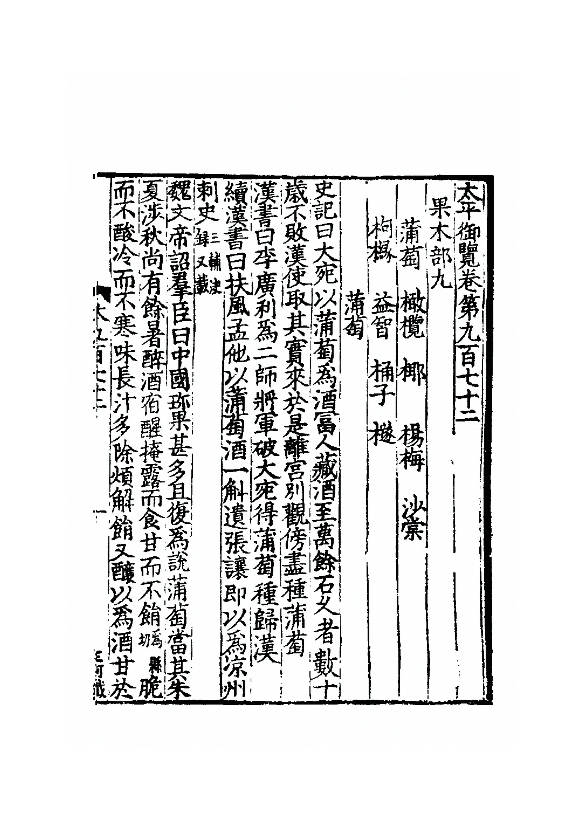 太平御覽卷第九百七十二
果木部九
蒲萄 橄欖 椰 楊梅 沙棠
枸櫞 益智 桶子 㯌
蒲萄
史記曰大宛以蒲萄爲酒冨人藏酒至萬餘石久者數十
歲不敗漢使取其實來於是離宮別觀傍盡種蒲萄
漢書曰李廣利爲二師將軍破大宛得蒲萄種歸漢
續漢書曰扶風孟他以蒲萄酒一斛遺張讓即以爲涼州
刺史三輔決録又載
魏文帝詔羣臣曰中國珎果甚多且復爲說蒲萄當其朱
夏涉秋尚有餘暑醉酒宿醒掩露而食甘而不䬼爲縣切脆
而不酸冷而不寒味長汁多除煩解䬼又釀以爲酒甘於